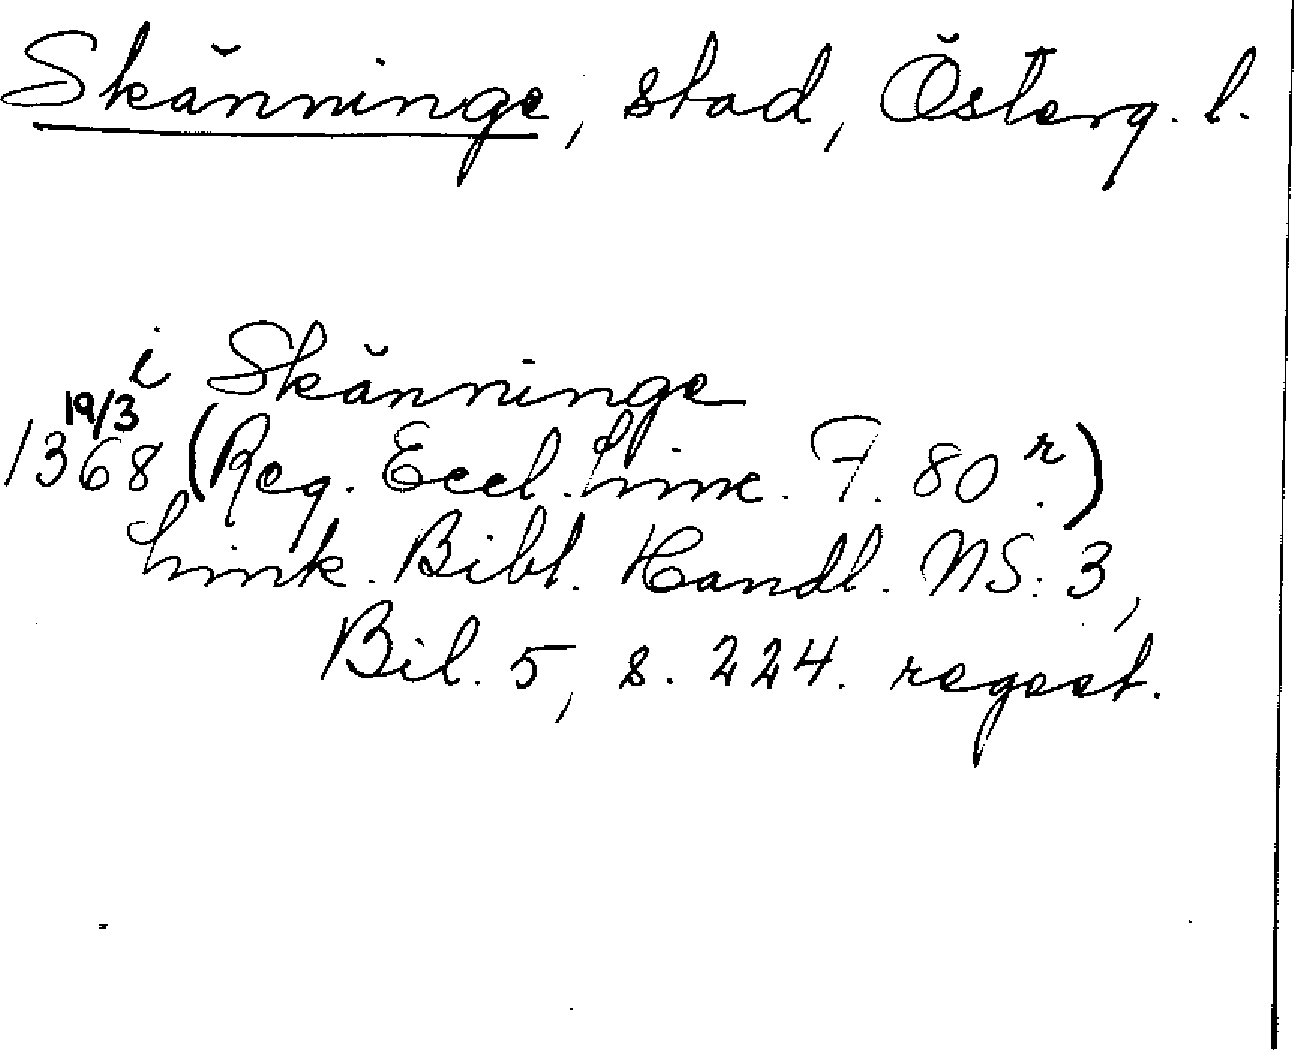 Skänninge, stad, Österg. l.
i Skänninge
19/3
1368 (Reg. Eccl. Linc. F. 80 r.)
Link. Bibl. Handl. NS: 3,
Bil. 5, s. 224. regest.